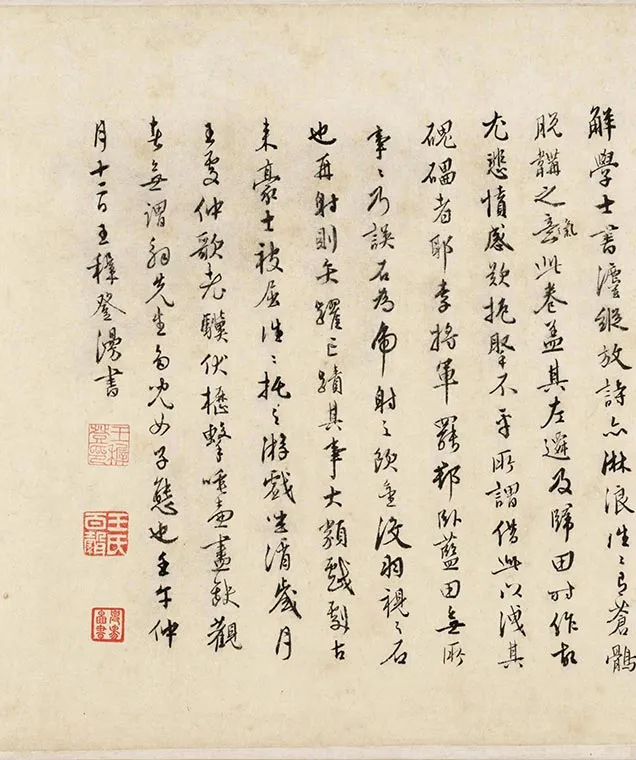 解學士書縱放詩亦淋浪往々有蒼鶻
脫韝之意氣此卷蓋其左遷及歸田時作故
尤悲憤感歎抱不平所謂借此以洩其
磈磊者耶李將軍罷郡臥藍田無所
事々乃誤石為虎射之飲金沒羽視之石
也再射則矢躍已蹟其事大類戲劇古
來豪士被屈往々托之游戲坐消歲月
王處仲歌老驥伏櫪擊唾壺盡缺觀
者無謂解先生為兒女子態也壬午仲
月十二日王穉登漫書
王穉登印
王氏百穀